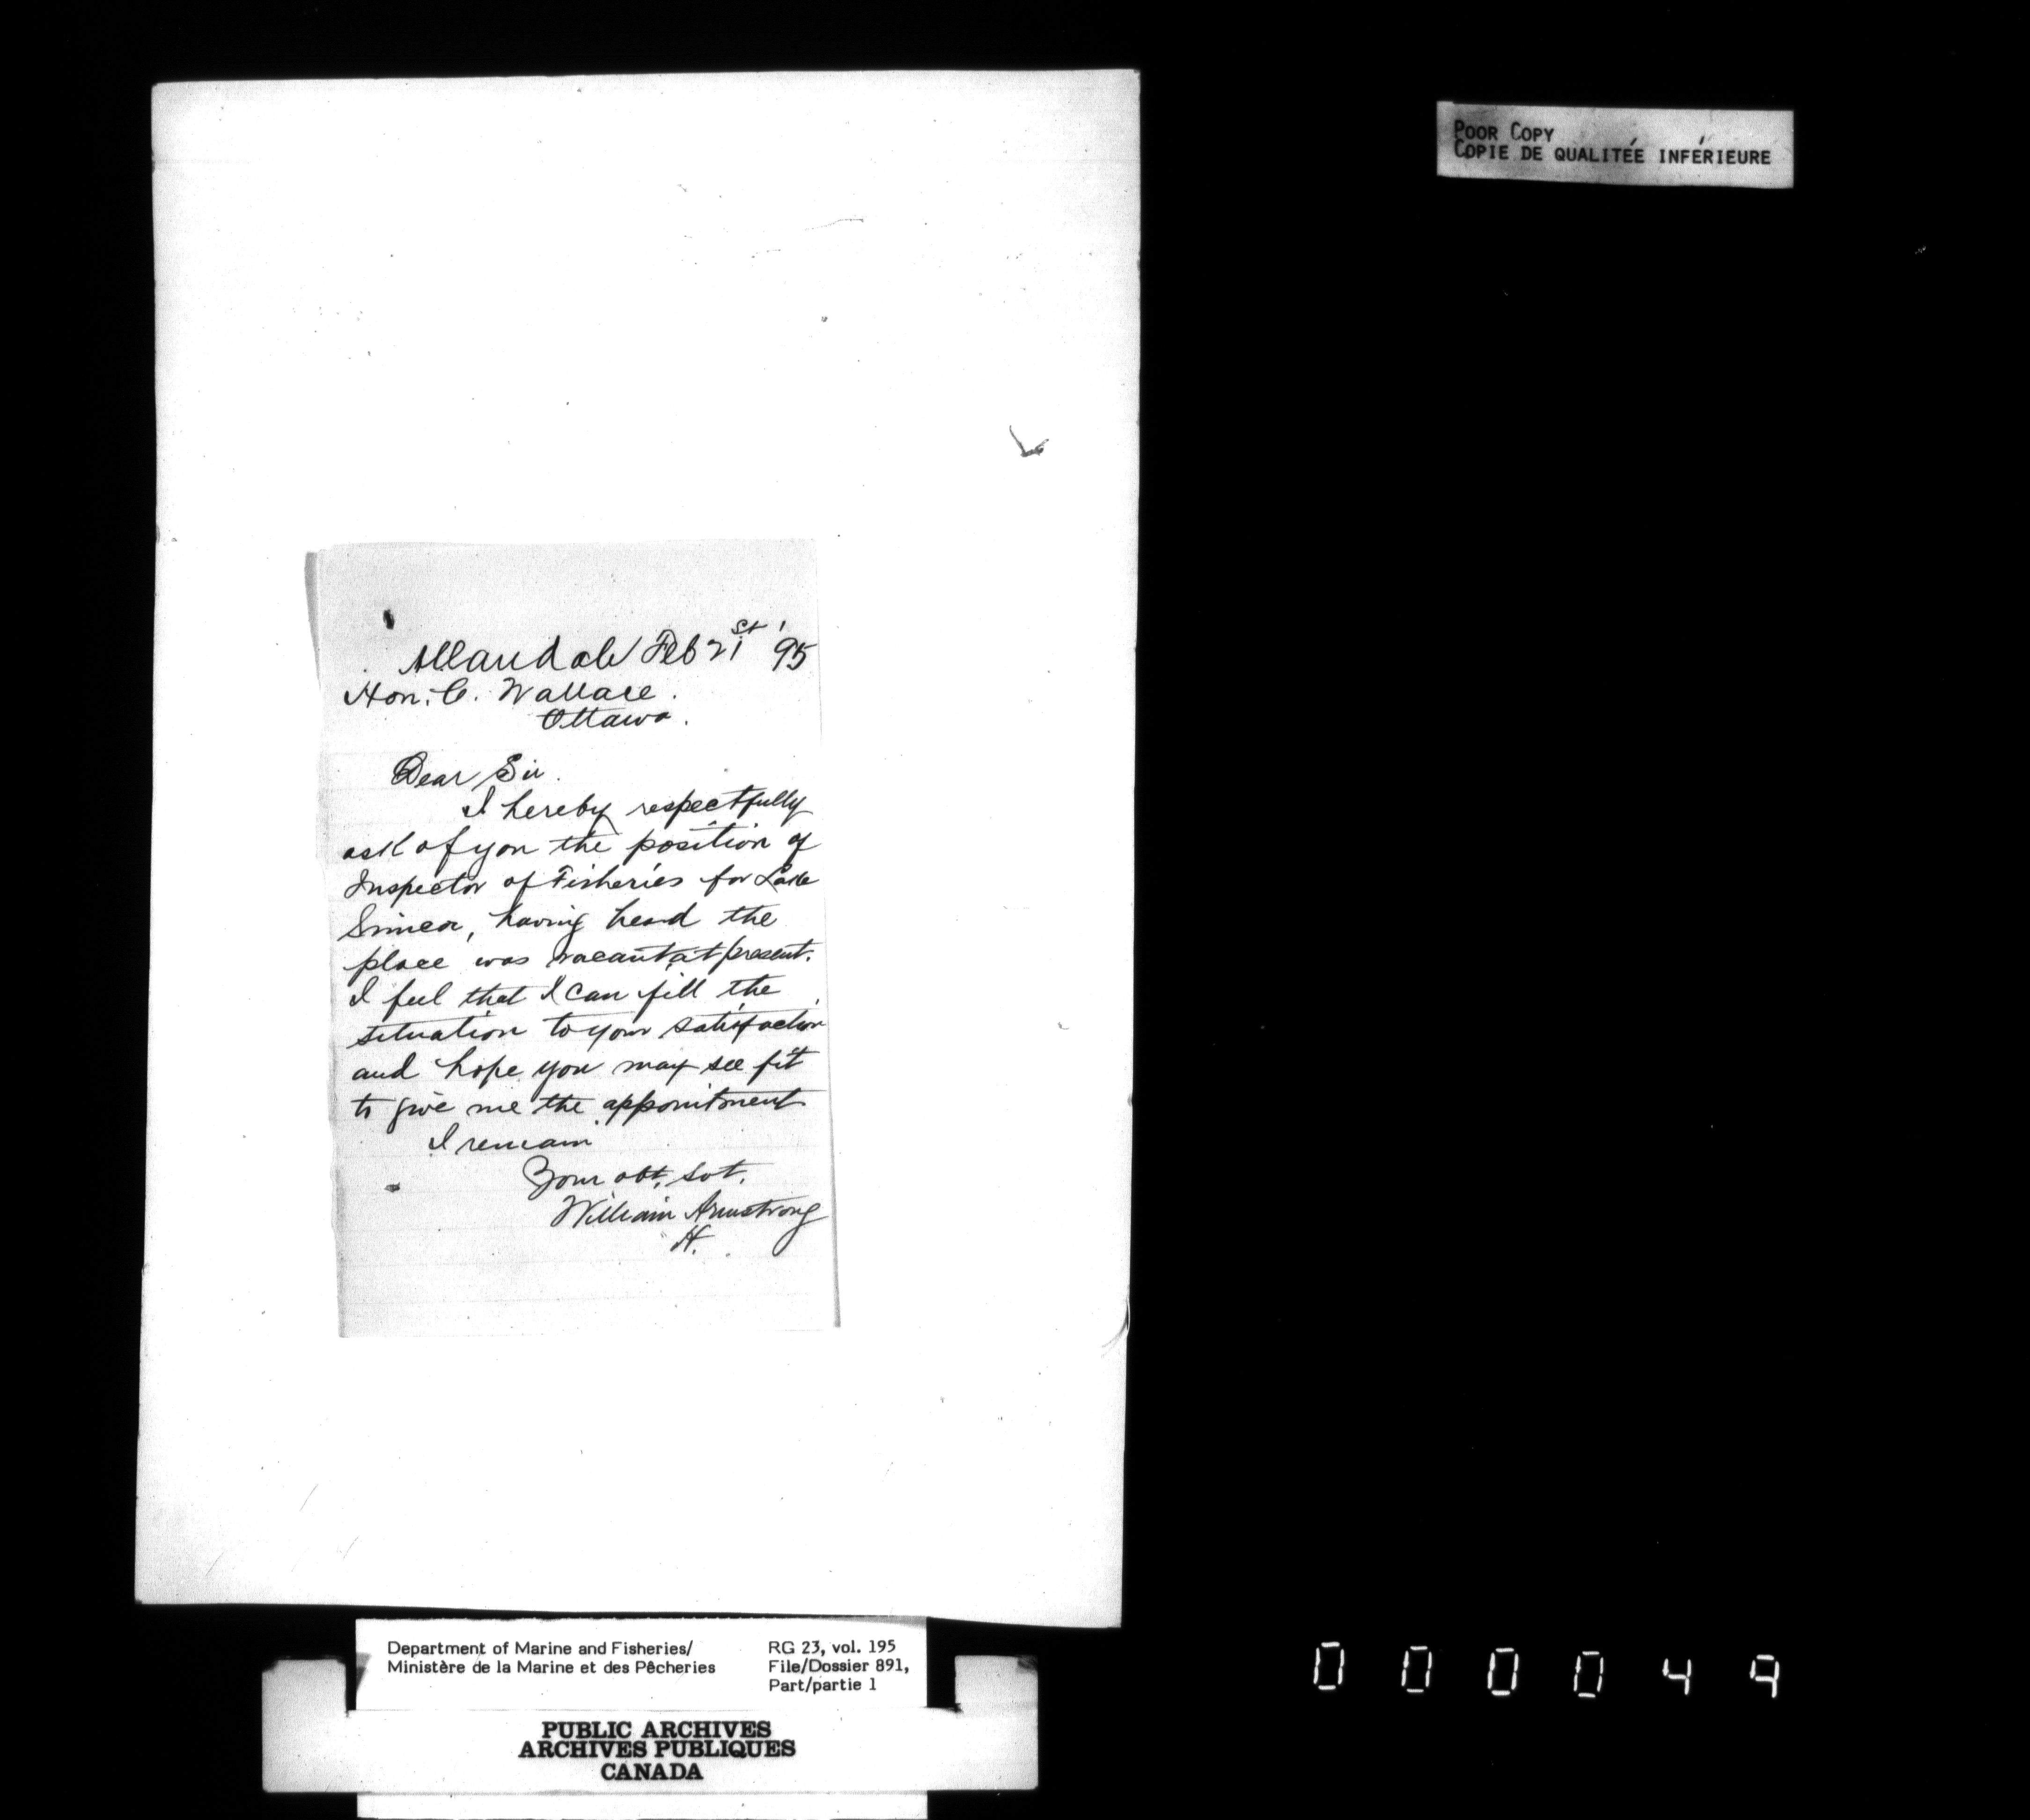 POOR COPY
COPIE DE QUALITÉE INFÉRIEURE
Allandale Feb 21st '95
Hon. C. Wallace.
Ottawa.
Dear Sir.
I hereby respectfully
ask of you the position of
Inspector of Fisheries for Lake
Simcoe, having heard the
place was vacant at present.
I feel that I can fill the
situation to your satisfaction
and hope you may see fit
to give me the appointment
I remain
Your obt. svt.
William Armstrong
H.
Department of Marine and Fisheries/
Ministère de la Marine et des Pêcheries
RG 23, vol. 195
File/Dossier 891,
Part/partie 1
PUBLIC ARCHIVES
ARCHIVES PUBLIQUES
CANADA
000049